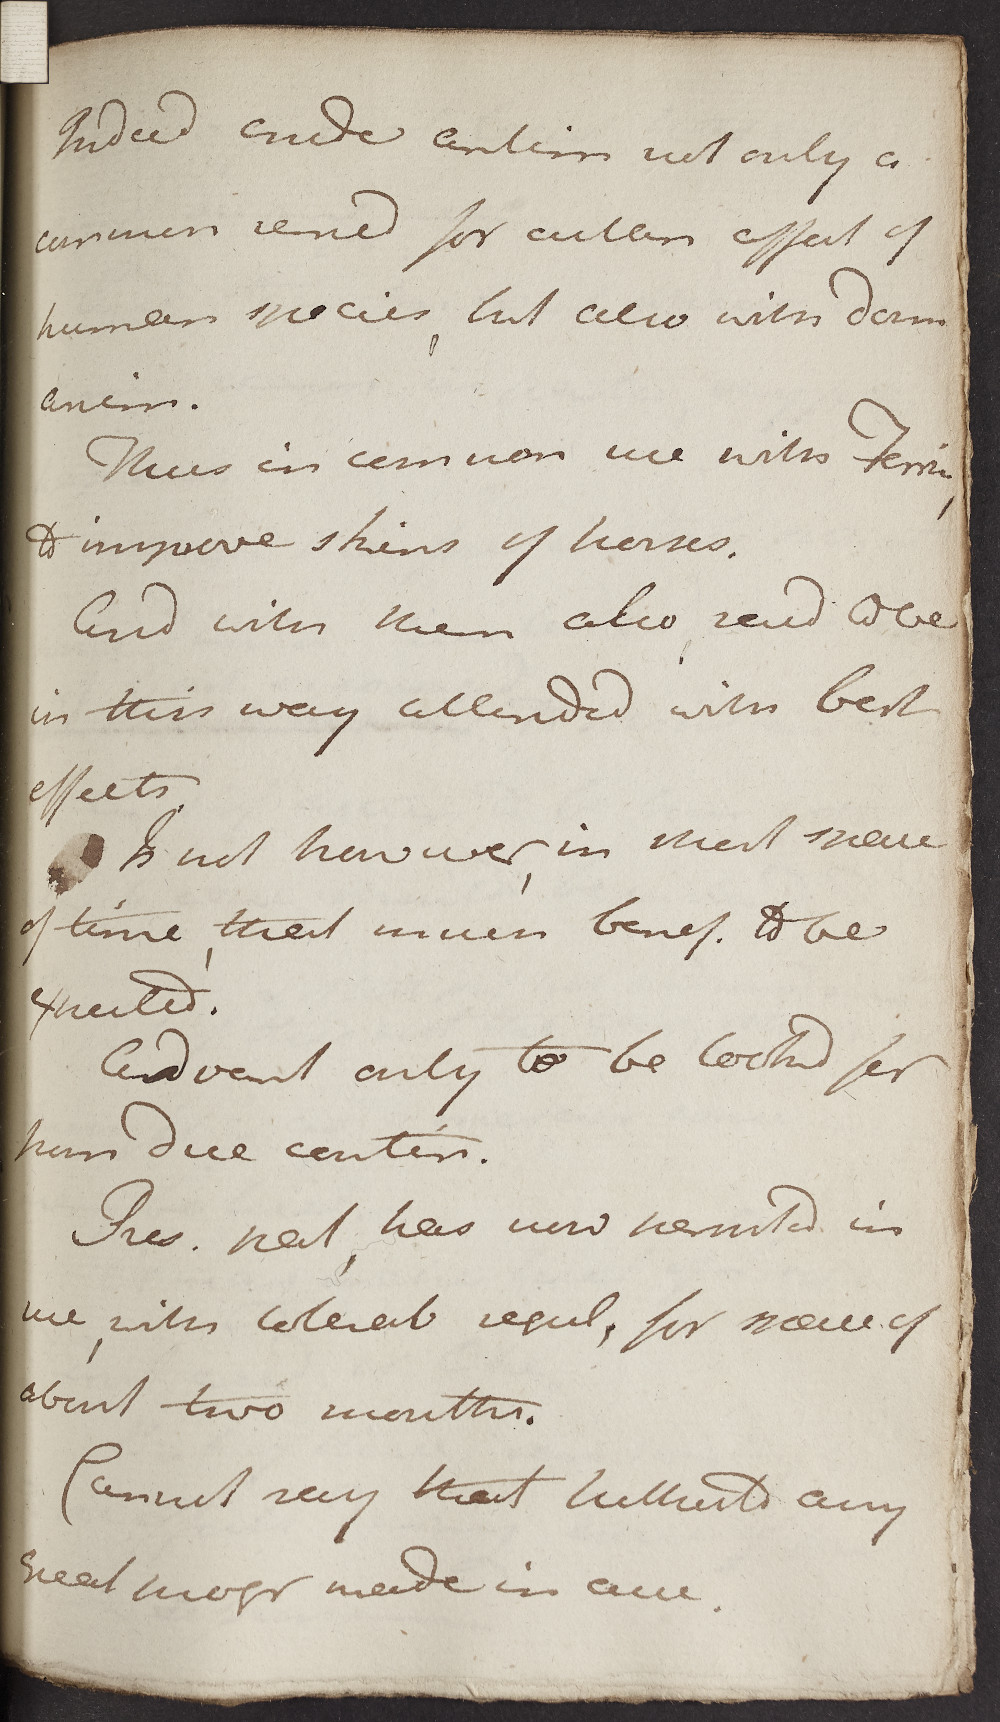 Indeed crude antim not only a
common remed for cutan affect of
human species, but also with dom
anim.
Thus in common use with Ferri,
to improve skins of horses.
And with them also, said to be
in this way attended with best
effects.
Is not however, in short space
of time, that much benef. to be
expected.
Advant only to be looked for
from due contin.
Pres. pat, has now persisted in
use, with tolerab regul, for space of
about two months.
Cannot say that hitherto any
great progr made in cure.